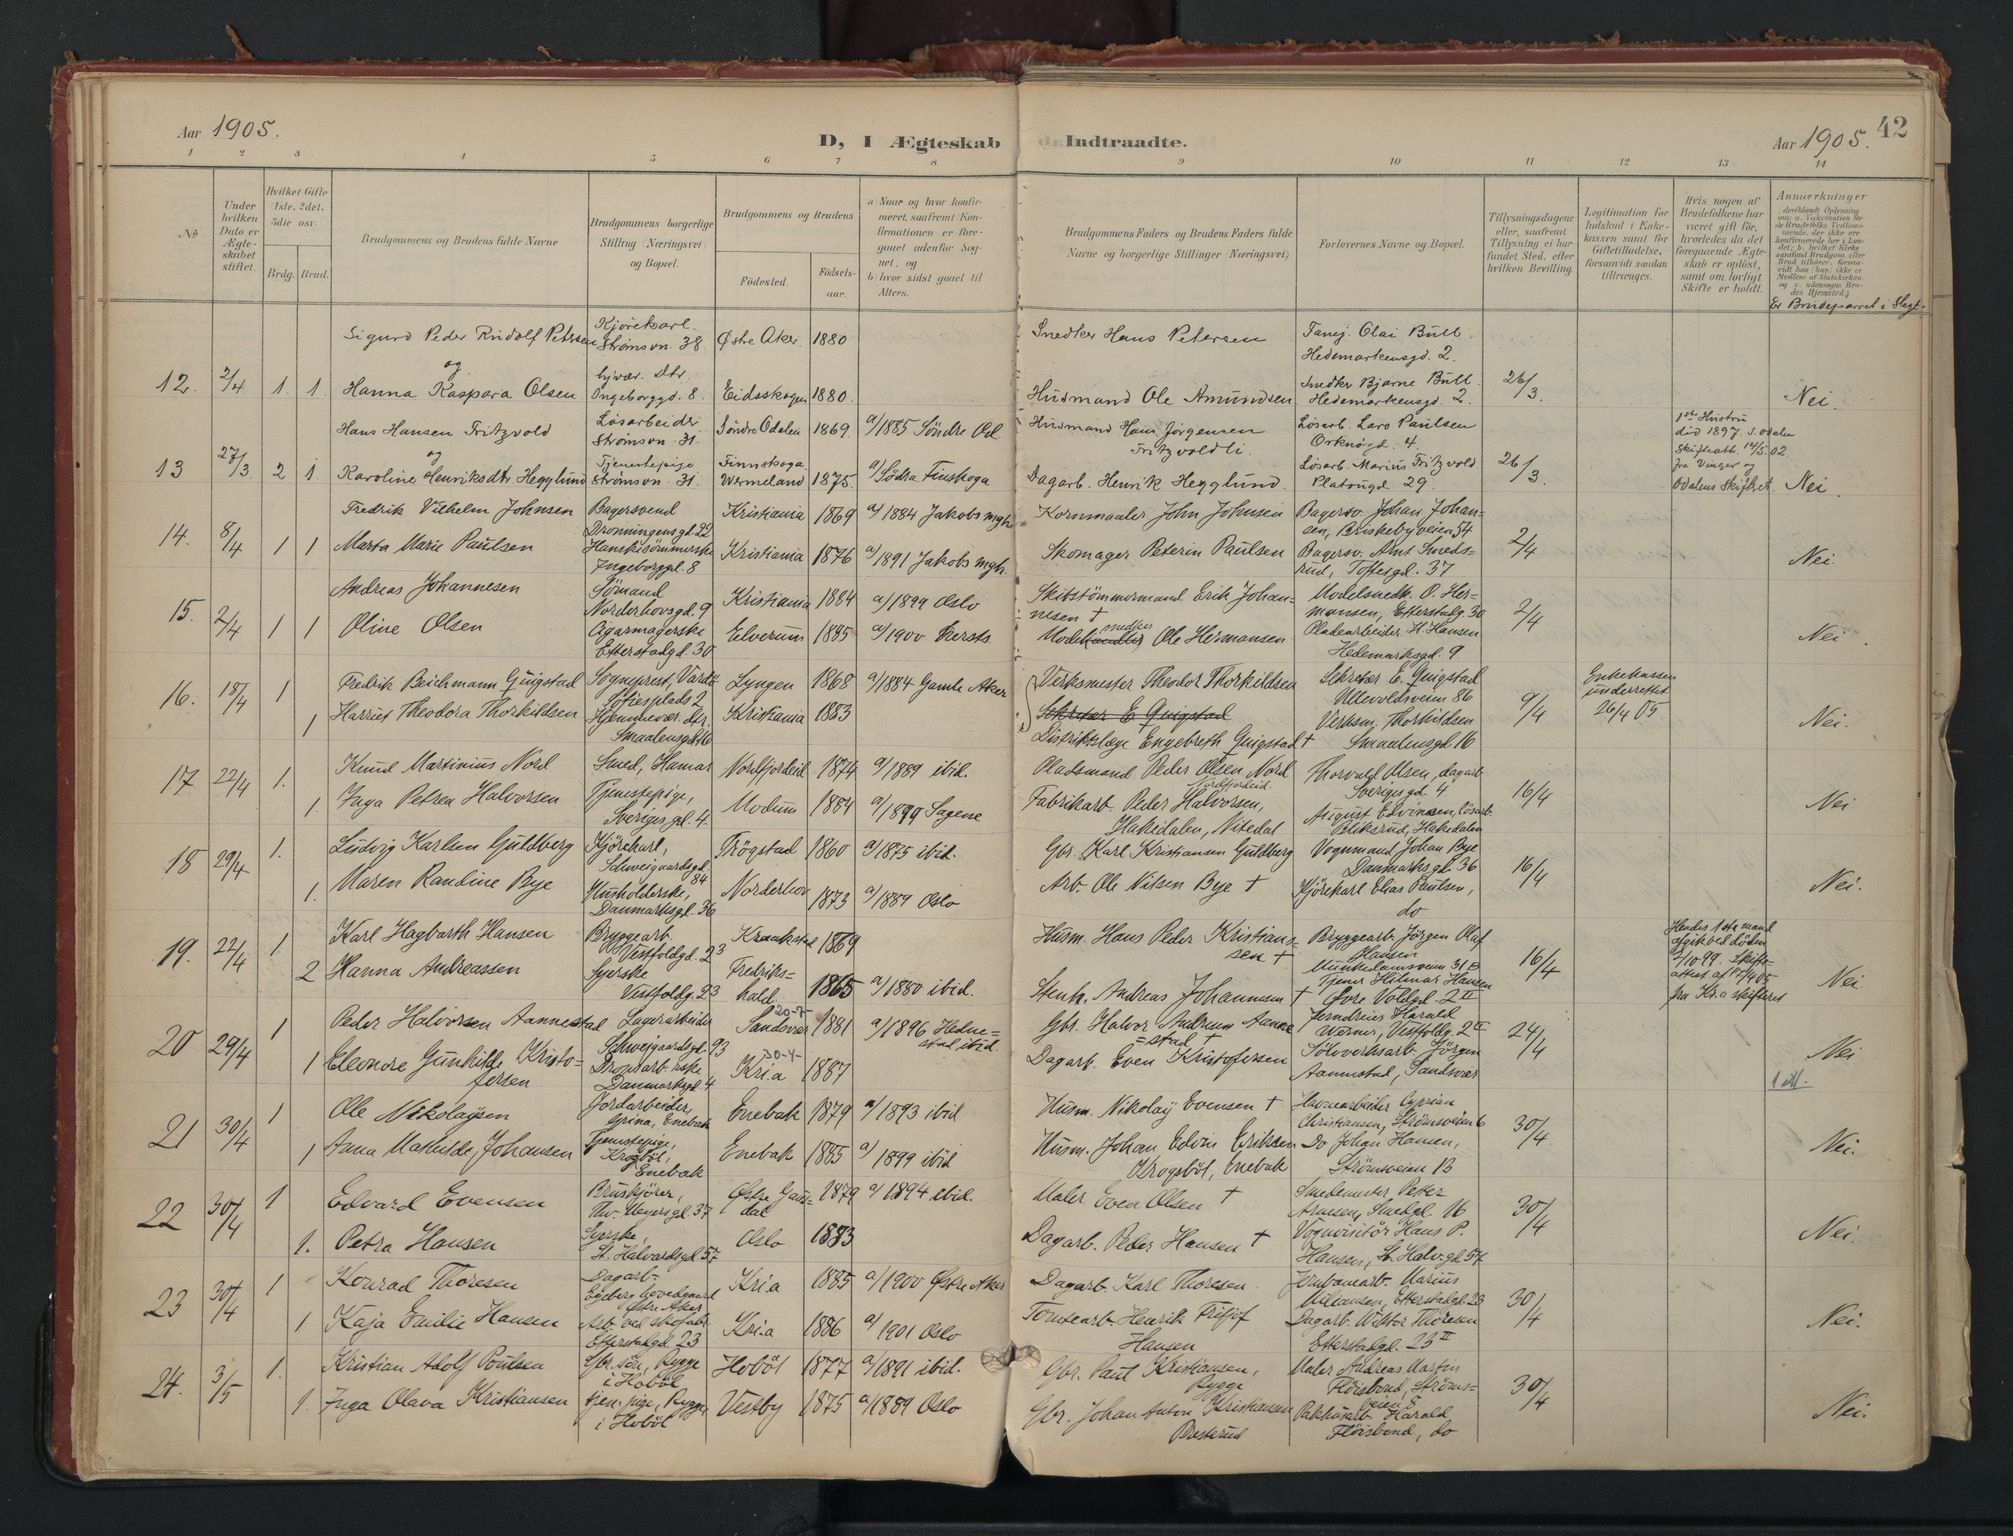 Aar 1905.
D, I Ægteskab Indtraadte.
Aar 1905.
42
1 2 3 4 5 6 7 8 9 10 11 12 13 14
No
Under hvilken Dato er Ægteskabet stiftet.
Hvilket Gifte 1ste, 2det, 3die osv.
Brdg. Brud.
Brudgommens og Brudens fulde Navne
Brudgommens borgerlige Stilling (Næringsvei) og Bopæl.
Brudgommens og Brudens
Fødested.
Fødselsaar.
a) Naar og hvor konfirmeret, saafremt Konfirmationen er foregaaet udenfor Sognet, og
b) hvor sidst gaaet til Alters.
Brudgommens Faders og Brudens Faders fulde Navne og borgerlige Stillinger (Næringsvei)
Forlovernes Navne og Bopæl.
Tillysningsdagene eller, saafremt Tillysning ei har fundet Sted, efter hvilken Bevilling.
Legitimation for Indskud i Enkekassen samt for Giftetilladelse, forsaavidt saadan tiltrænges.
Hvis nogen af Brudefolkene har været gift før, hvorledes da det foregaaende Ægteskab er opløst, samt om lovligt Skifte er holdt.
Anmærkninger
Er Brudeparret i Slegt.
12. 2/4 1. 1.
Sigurd Peder Rudolf Petersen Kjørekarl Strømsvn. 38. Østre Aker. 1880 Snedker Hans Petersen Olai Bull Hedemarkensgd. 2.
og
Hanna Kaspara Olsen Ingeborggd. 8. Eidsskogen 1880. Husmand Ole Amundsen Snedker Bjarne Bull Hedemarkensgd. 2. 26/3. Nei.
13 27/3 2 1
Hans Hansen Fritzvold Løsarbeider Strømsvn. 31. Søndre Odalen 1869. a/1885 Søndre Od. Husmand Hans Jørgensen Fritzvoldli. Løsarb. Lars Paulsen Orknøgd. 4
og
Karoline Henriksdtr Hegglund Tjenestepige Strømsvn. 31. Finnskoga Wermeland 1875. a/Södra Finskoga Dagarb. Henrik Hegglund. Løsarb. Marius Fritzvold Platousgd 29. 26/3. 1ste Hustru død 1897 S. Odalen Skifteatt. 14/5.02. fra Vinger og Odalens Skifteret. Nei.
14. 8/4 1 1
Fredrik Vilhelm Johnsen Bagersvend Dronningensgd. 22 Kristiania 1869 a/1884 Jakobs mgh. Kornmaaler John Johnsen Bagersv. Johan Johansen, Briskebyveien 54
Marta Marie Paulsen Hanskesömmerske Ingeborggd. 8 Kristiania 1876 a/1891 Jakobs mgh. Skomager Peterin Paulsen Bagersv. Amt Smedsrud, Toftesgd. 37 2/4 Nei.
15. 2/4 1 1
Andreas Johannesen Sömand Norderhovsgd. 9 Kristiania 1884 a/1899 Oslo Skibstömmermand Erik Johannesen † Modelsnedk. O. Hermansen, Etterstadg. 30
Oline Olsen Cigarmagerske Etterstadgd. 30 Elverum 1885 a/1900 Modelsnedker Ole Hermansen Pladearbeider H. Hansen Hedemarksgd. 9 2/4 Nei.
16. 18/4 1
Fredrik Beichmann Quigstad Sogneprest, Vardø Sofiesplads 2 Lyngen 1868 a/1884 Gamle Aker Verksmester Theodor Thorkildsen Sekretær E. Quigstad Ullevoldsveien 86
1 Harriet Theodora Thorkildsen Hjemmevær. dtr. Smaalensgd. 16 Kristiania 1883 Sekretær E Quigstad Distriktslæge Engebreth Quigstad † Verksm. Thorkildsen Smaalensgd 16 9/4 Enkekassen underrettet 26/4 05 Nei.
17 22/4 1.
Knud Martinius Nord Smed, Hamar Nordfjordeid 1874 a/1889 ibid. Pladsmand Peder Olsen Nord Nordfjordeid. Thorvald Olsen, dagarb. Sverigesgd. 4
1. Inga Petrea Halvorsen Tjenestepige, Sverigesgd. 4. Modum 1884 a/1899 Sagene Fabrikarb. Peder Halvorsen, Hakedalen, Nitedal August Edvinsen, løsarb. Bliksrud, Hakedalen 16/4 Nei
18 29/4 1.
Ludvig Karlsen Guldberg Kjörekarl, Schweigaardsgd. 84 Trögstad 1860 a/1875 ibid. Gbr. Karl Kristiansen Guldberg Vognmand Johan Bye Danmarksgd. 36
1. Maren Randine Bye Husholderske, Danmarksgd. 36 Norderhov 1873 a/1889 Oslo Arb. Ole Nilsen Bye † Kjörekarl Elias Paulsen, do 16/4 Nei.
19. 22/4 1
Karl Hagbarth Hansen Bryggearb. Vestfoldgd. 23 Kraakstad 1869 Husm. Hans Peder Kristiansen † Bryggearb. Jörgen Olaf Hansen Munkedamsveien 31 B
2 Hanna Andreassen Syerske Vestfoldg. 23 Fredrikshald. 1865 a/1880 ibid. Stenh. Andreas Johannesen † Tjener Hilmar Hansen Övre Voldgd. 2 II 16/4 Hendes 1ste mand afgik ved döden 7/10 99. Skifteattest af 17/4 05 fra Kr.a skifteret Nei
20 29/4 1
Peder Halvorsen Aannestad Lagerarbeider Schweigaardsgd. 93 Sandsvær 1881 a/1896 Hednestad ibid. Gbr. Halvor Andersen Aannestad † Jerndreier Harald Werner, Vestfoldg. 2 II
1 Eleonore Gunhilde Kristofersen Danmarksgd. 4 Kr.a 1887 Dagarb. Even Kristofersen Sölvverksarb. Jörgen Aannestad, Sandsvær 24/4 Nei
21 30/4 1
Ole Nikolaysen Jordarbeider, Grina, Enebak Enebak 1879 a/1893 ibid Husm. Nikolay Evensen † Havnearbeider Cyprian Christiansen, Strömsveien 6
1 Anna Mathilde Johansen Tjenestepige, Krogböl, Enebak Enebak 1885 a/1899 ibid Husm. Johan Edvin Eriksen Krogsböl, Enebak Do Johan Hansen, Strömsveien 13 30/4 Nei.
22 30/4 1
Edvard Evensen Bruskjörer, Thv. Meyersgd. 37 Østre Gausdal 1879 a/1894 ibid. Maler Even Olsen † Smedemester Petter Arnesen, Smedgd. 16
1. Petra Hansen Syerske, St. Halvardsgd. 57 Oslo 1883 Dagarb. Peder Hansen † Vognvisitör Hans P. Hansen, St. Halv.gd. 57 30/4 Nei.
23 30/4 1
Konrad Thoresen Dagarb. Egeberg Hovedgaard Østre Aker Kr.a 1885 a/1900 Østre Aker Dagarb. Karl Thoresen. Jernbanearb. Marius Etterstadgd. 23
1 Kaja Emilie Hansen Arb. ved skofabr. Etterstadgd 23 Kr.a 1886 a/1901 Oslo Tomtearb. Henrik Fritjof Hansen Dagarb. Viktor Thoresen Etterstadgd. 23 II 30/4 Nei.
24. 3/5 1.
Kristian Adolf Poulsen Gbr.sön, Rygge i Hoböl Hoböl 1877 a/1891 ibid. Gbr. Paul Kristiansen, Rygge Maler Andreas Martin Flöisbond, Strömsveien 8
1. Inga Olava Kristiansen tjen.pige, Rygge i Hoböl Vestby 1875 a/1889 Oslo Gbr. Johan Anton Kristiansen Pakhusarb. Harald Flöisbond, do 30/4 Nei.